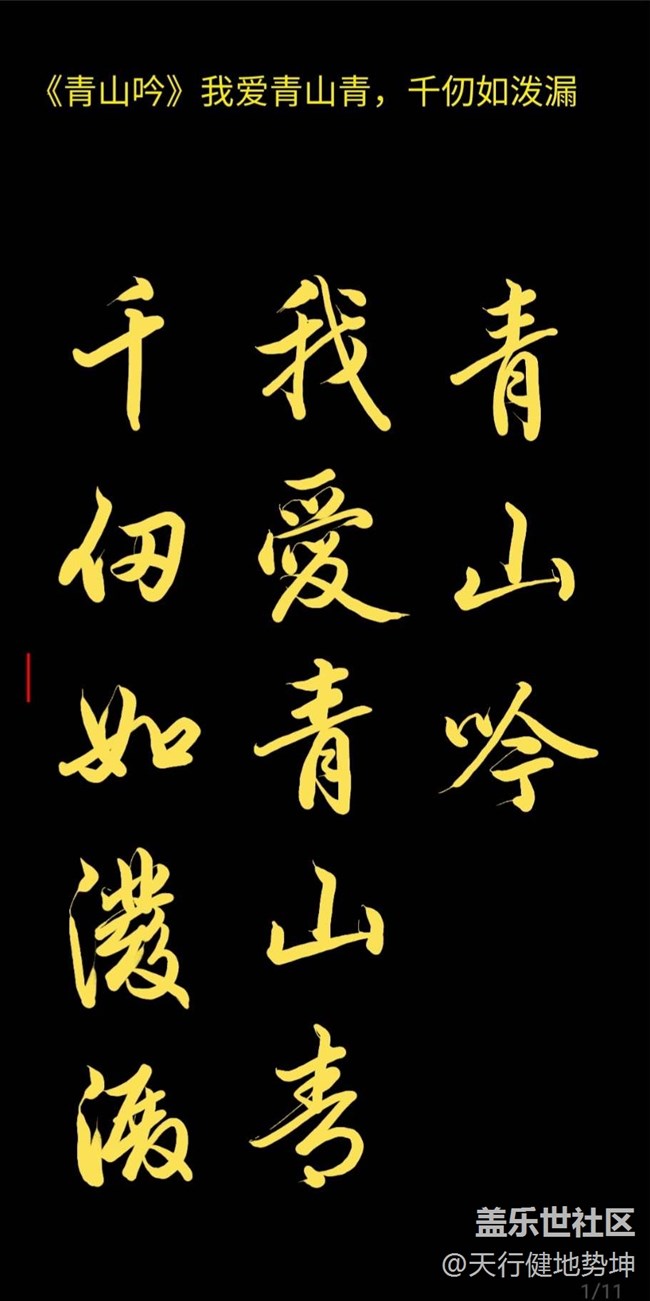 《青山吟》我爱青山青，千仞如泼漏
青山吟
我愛青山青
千仞如潑漏
盖乐世社区
@天行健地势坤
1/11